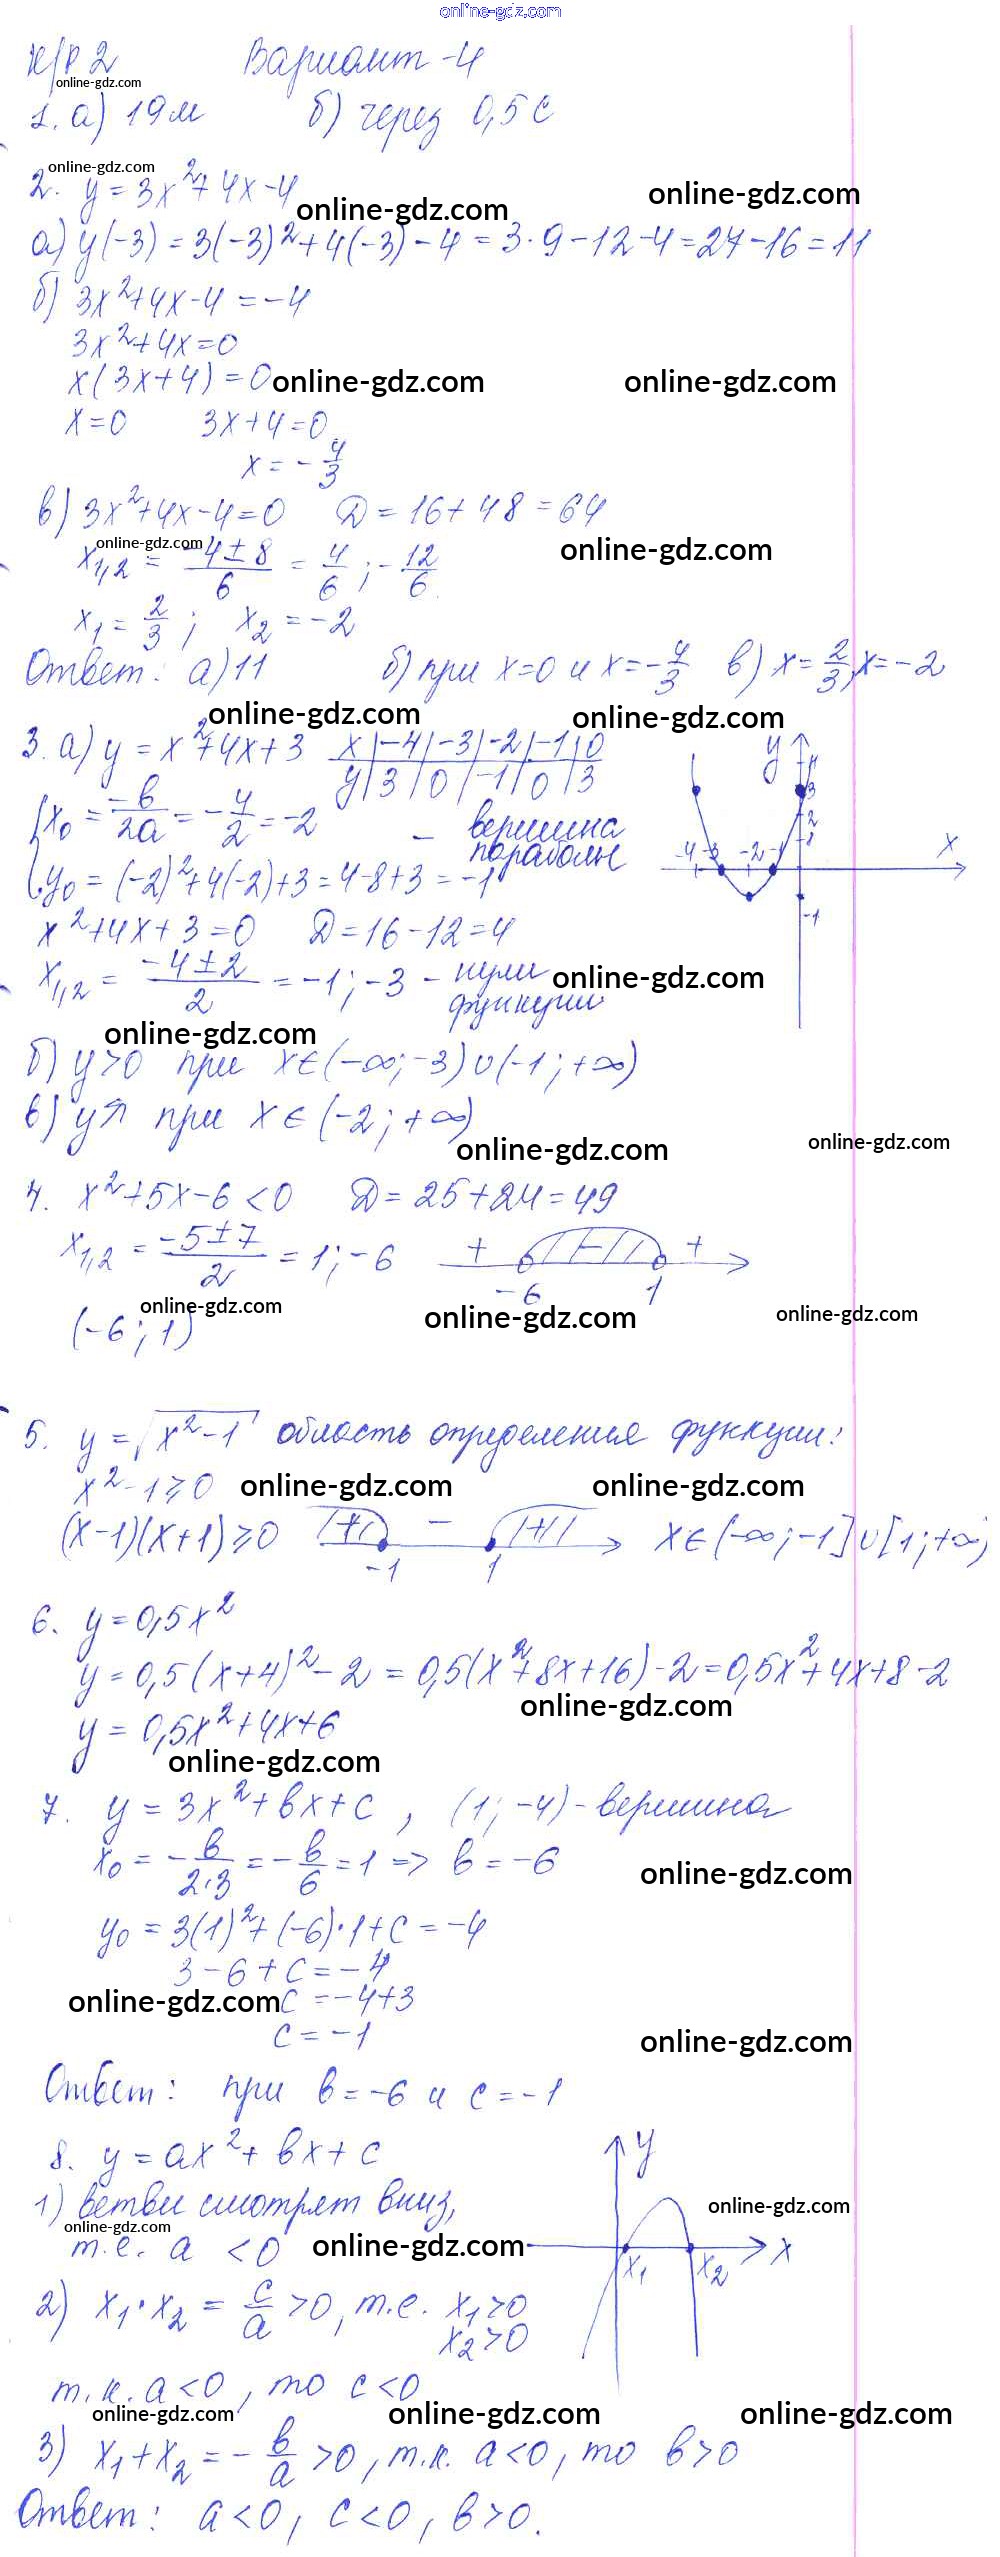 online-gdz.com
К/Р 2 Вариант-4
online-gdz.com
1. а) 19м б) через 0,5 с
online-gdz.com
2. y = 3x²+4x-4
online-gdz.com online-gdz.com
а) y(-3) = 3(-3)²+4(-3)-4 = 3·9-12-4=27-16=11
б) 3x²+4x-4=-4
3x²+4x=0
x(3x+4)=0
online-gdz.com online-gdz.com
x=0 3x+4=0
x = -4/3
в) 3x²+4x-4=0 D=16+48=64
online-gdz.com online-gdz.com
x₁,₂ = (-4±8)/6 = 4/6; -12/6
x₁ = 2/3; x₂ = -2
Ответ: а) 11 б) при x=0 и x=-4/3 в) x=2/3, x=-2
online-gdz.com online-gdz.com
3. а) y = x²+4x+3 x|-4|-3|-2|-1|0
y|3|0|-1|0|3
{x₀ = -b/2a = -4/2 = -2
y₀ = (-2)²+4(-2)+3=4-8+3=-1
- вершина
параболы
y 3 2 1 x -4 -3 -2 -1 -1
x²+4x+3=0 D=16-12=4
x₁,₂ = (-4±2)/2 = -1; -3 - нули
функции
online-gdz.com
online-gdz.com
б) y>0 при x∈(-∞;-3)∪(-1;+∞)
в) y↗ при x∈(-2;+∞)
online-gdz.com online-gdz.com
4. x²+5x-6<0 D=25+24=49
x₁,₂ = (-5±7)/2 = 1; -6 + - +
-6 1
online-gdz.com online-gdz.com online-gdz.com
(-6; 1)
5. y = √(x²-1) область определения функции:
x²-1≥0
online-gdz.com online-gdz.com
(x-1)(x+1)≥0 + - + x∈(-∞;-1]∪[1;+∞)
-1 1
6. y = 0,5x²
y = 0,5(x+4)²-2 = 0,5(x²+8x+16)-2=0,5x²+4x+8-2
online-gdz.com
y = 0,5x²+4x+6
online-gdz.com
7. y = 3x²+bx+c, (1; -4)-вершина
x₀ = -b/2·3 = -b/6 = 1 => b = -6
online-gdz.com
y₀ = 3(1)²+(-6)·1+c = -4
3-6+c=-4
online-gdz.com
c = -4+3
c = -1
online-gdz.com
Ответ: при b=-6 и c=-1
8. y = ax²+bx+c
1) ветви смотрят вниз,
online-gdz.com online-gdz.com
т.е. a <0
online-gdz.com
y x x₁ x₂
2) x₁·x₂ = c/a >0, т.е. x₁>0
x₂>0
т.к. a<0, то c<0
online-gdz.com online-gdz.com online-gdz.com
3) x₁+x₂ = -b/a >0, т.к. a<0, то b>0
Ответ: a<0, c<0, b>0.